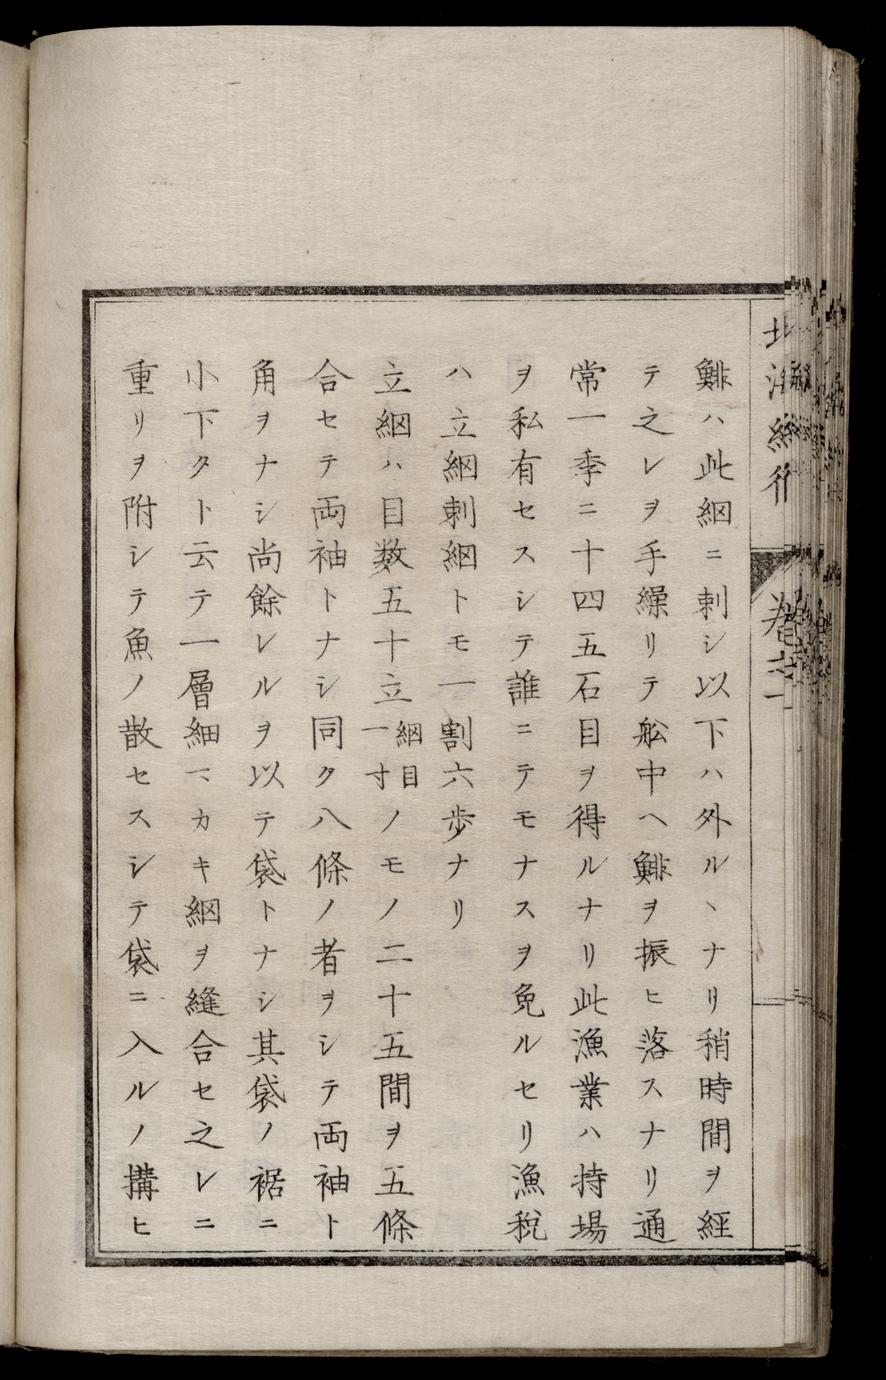 鯡ハ此綱ニ刺シ以下ハ外ルヽナリ稍時間ヲ經
テ之レヲ手繰リテ舩中ヘ鯡ヲ振ヒ落スナリ通
常一季ニ十四五石目ヲ得ルナリ此漁業ハ持場
ヲ私有セスシテ誰ニテモナスヲ免ルセリ漁税
ハ立綱刺綱トモ一割六歩ナリ
立綱ハ目数五十立綱目一寸ノモノ二十五間ヲ五條
合セテ両袖トナシ同ク八條ノ者ヲシテ両袖ト
角ヲナシ尚餘レルヲ以テ袋トナシ其袋ノ裾ニ
小下タト云テ一層細マカキ綱ヲ縫合セ之レニ
重リヲ附シテ魚ノ散セスシテ袋ニ入ルノ搆ヒ